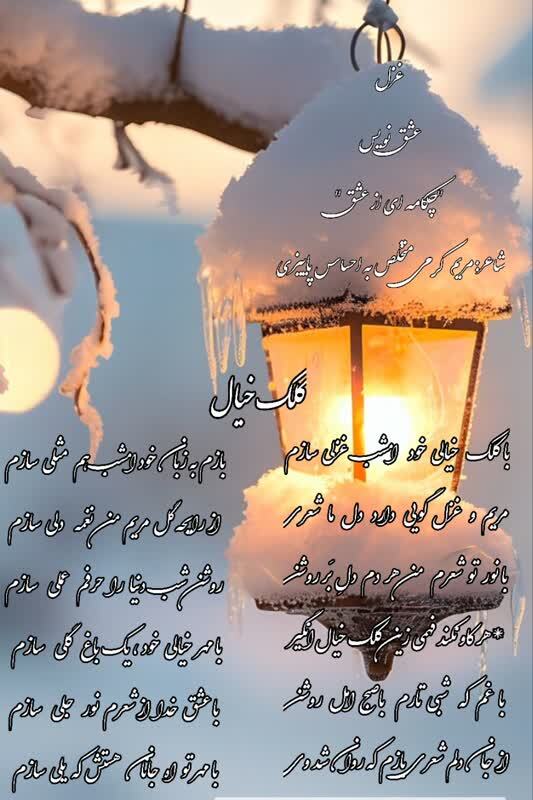 غزل
عشق نویس
"چکامه ای از عشق"
شاعر: مریم کرمی متخلص به احساس پاییزی
کلک خیال
با کلک خیالی خود امشب غزلی سازم
بازم به زبان خود امشب هم مثلی سازم
مریم و غزل گویی دارد دل ما شعری
از رایحه گل مریم من نغمه دلی سازم
با نور تو شعرم من هر دم دل بَر روشن
روشن شب دنیا را حرفم عملی سازم
*هر کاو نکند فهمی زین کلک خیال انگیر
با مهر خیالی خود، یک باغ گلی سازم
با غم که شبی تارم با صبح روشن
با عشق خدا از شعرم نور جلی سازم
از جان دلم شعری بازم که روان شد وی
با مهر تو جانان هستش که یلی سازم